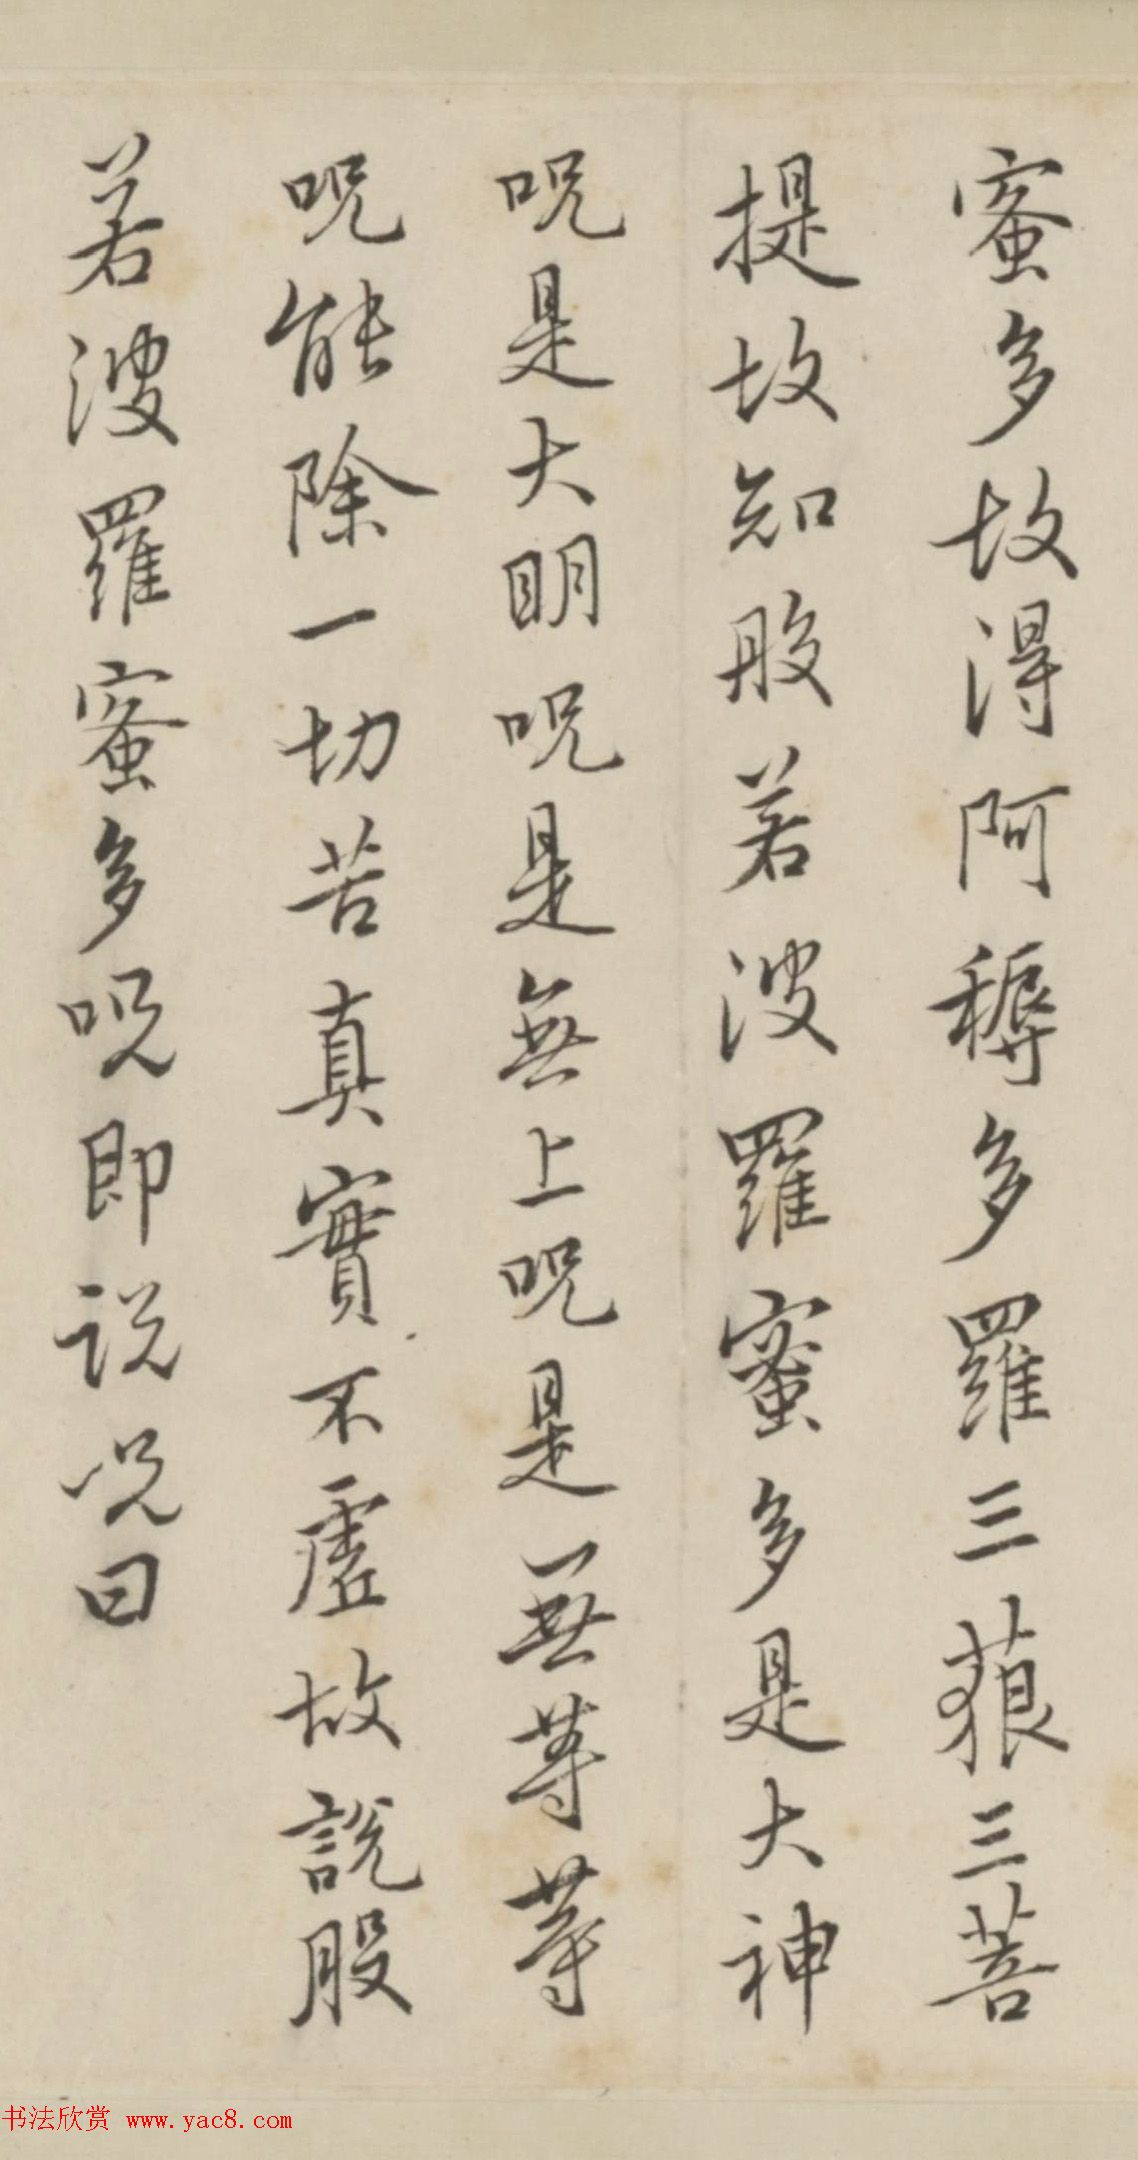 蜜多故得阿耨多羅三藐三菩
提故知般若波羅蜜多是大神
呪是大明呪是無上呪是無等等
呪能除一切苦真實不虛故說般
若波羅蜜多呪即説呪曰
书法欣赏 www.yac8.com